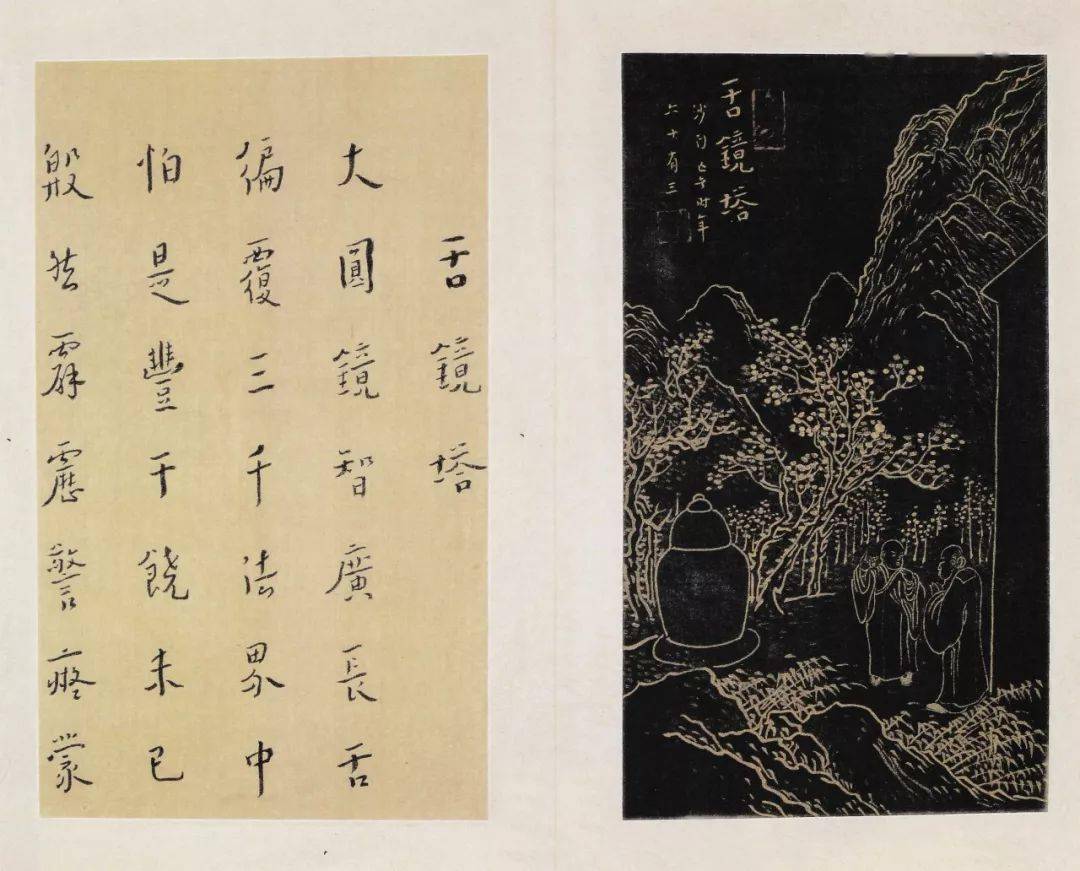 舌鏡塔
沙門時年
六十有三
舌鏡塔
大圓鏡智廣長舌
徧覆三千法界中
怕是豐干饒未已
殷然霹靂警蒙